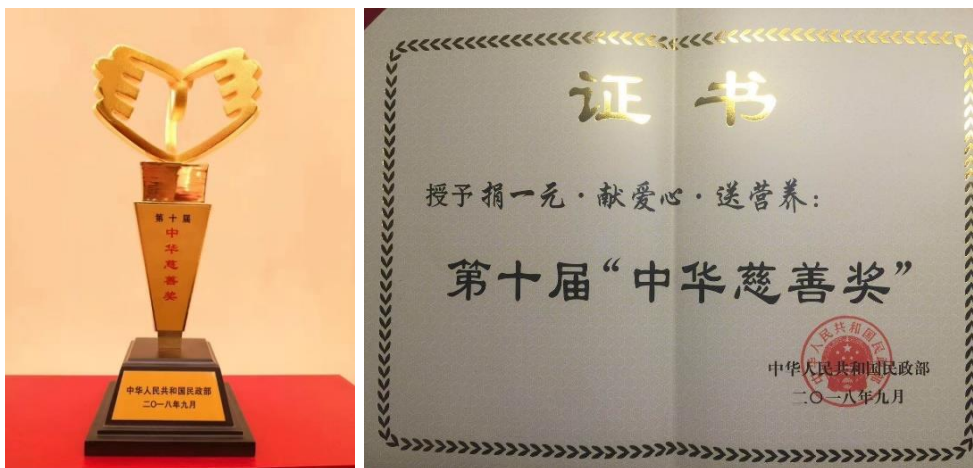 第十届
中华慈善奖
中华人民共和国民政部
二〇一八年九月
证书
授予捐一元·献爱心·送营养:
第十届“中华慈善奖”
中华人民共和国民政部
二〇一八年九月
中华人民共和国民政部